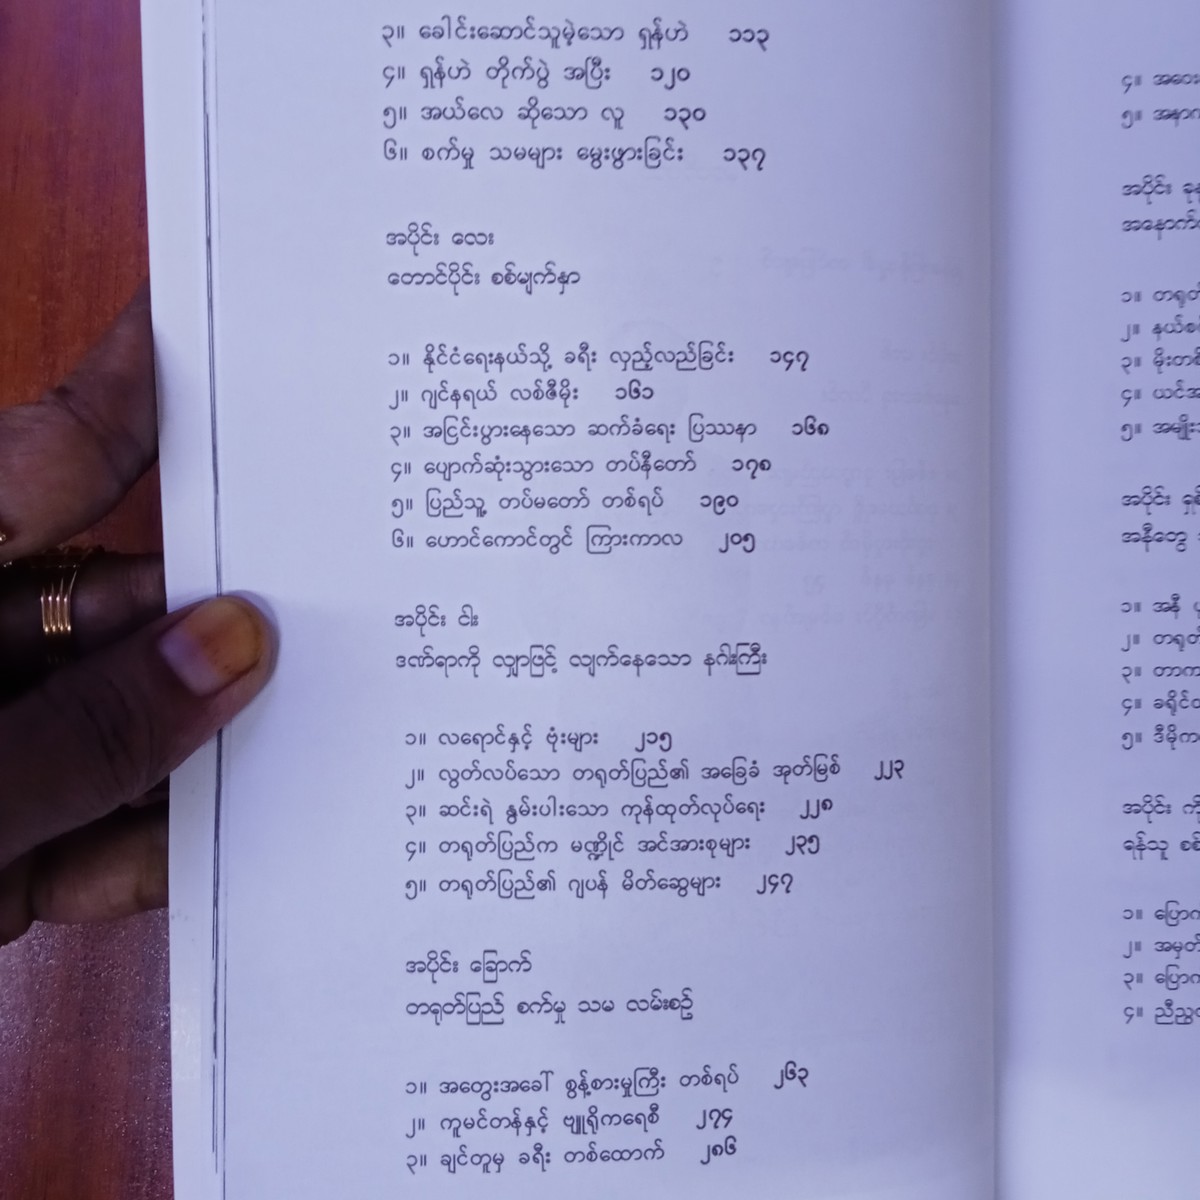 ၃။ ခေါင်းဆောင်သူမဲ့သော ရှန်ဟဲ ၁၁၃
၄။ ရှန်ဟဲ တိုက်ပွဲ အပြီး ၁၂၀
၅။ အယ်လေ ဆိုသော လူ ၁၃၀
၆။ စက်မှု သမများ မွေးဖွားခြင်း ၁၃၇
အပိုင်း လေး
တောင်ပိုင်း စစ်မျက်နှာ
၁။ နိုင်ငံရေးနယ်သို့ ခရီး လှည့်လည်ခြင်း ၁၄၇
၂။ ဂျင်နရယ် လစ်ဇီမိုး ၁၆၁
၃။ အငြင်းပွားနေသော ဆက်ခံရေး ပြဿနာ ၁၆၈
၄။ ပျောက်ဆုံးသွားသော တပ်နီတော် ၁၇၈
၅။ ပြည်သူ့ တပ်မတော် တစ်ရပ် ၁၉၀
၆။ ဟောင်ကောင်တွင် ကြားကာလ ၂၀၅
အပိုင်း ငါး
ဒဏ်ရာကို လျှာဖြင့် လျက်နေသော နဂါးကြီး
၁။ လရောင်နှင့် ဗုံးများ ၂၁၅
၂။ လွတ်လပ်သော တရုတ်ပြည်၏ အခြေခံ အုတ်မြစ် ၂၂၃
၃။ ဆင်းရဲ နွမ်းပါးသော ကုန်ထုတ်လုပ်ရေး ၂၂၈
၄။ တရုတ်ပြည်က မဏ္ဍိုင် အင်အားစုများ ၂၃၅
၅။ တရုတ်ပြည်၏ ဂျပန် မိတ်ဆွေများ ၂၄၇
အပိုင်း ခြောက်
တရုတ်ပြည် စက်မှု သမ လမ်းစဉ်
၁။ အတွေးအခေါ် စွန့်စားမှုကြီး တစ်ရပ် ၂၆၃
၂။ ကူမင်တန်နှင့် ဗျူရိုကရေစီ ၂၇၄
၃။ ချင်တူမှ ခရီး တစ်ထောက် ၂၈၆
၅။
အပိုင်း
၁။
၂။
၃။
၄။
၅။
အပိုင်း
၁။ အနီ
၂။
၃။
၄။
၅။
အပိုင်း
ရန်သူ
၁။
၂။
၃။
၄။